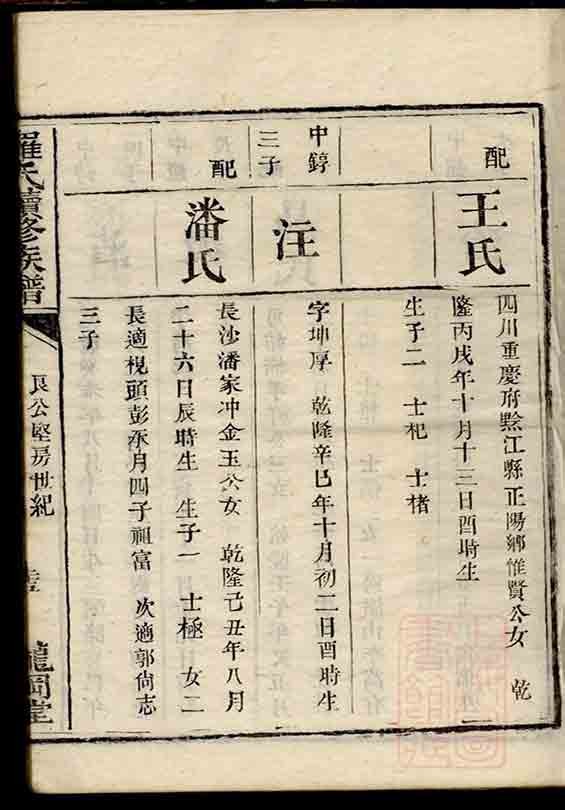 配
王氏
四川重慶府黔江縣正陽鄉惟賢公女 乾
隆丙戌年十月十三日酉時生
生子二 士杞 士楮
中錞
三子
注
字坤厚 乾隆辛巳年十月初二日酉時生
配
潘氏
長沙潘家冲金玉公女 乾隆己丑年八月
二十六日辰時生 生子一 士極 女二
長適梘頭彭永月四子祖富 次適郭尙志
三子
羅氏續修族譜
艮公堅房世紀
龍岡堂